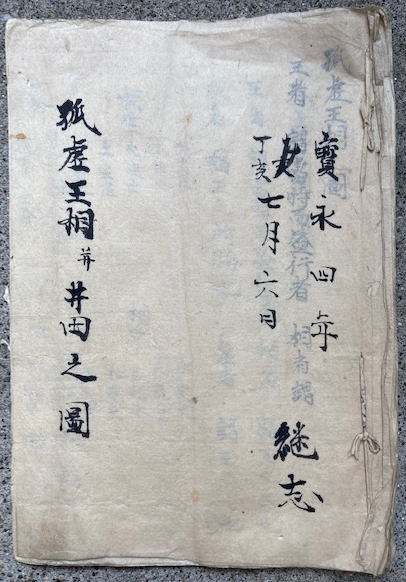 寶永四年
丁亥七月六日
継志
孤虚王相并井田之圖